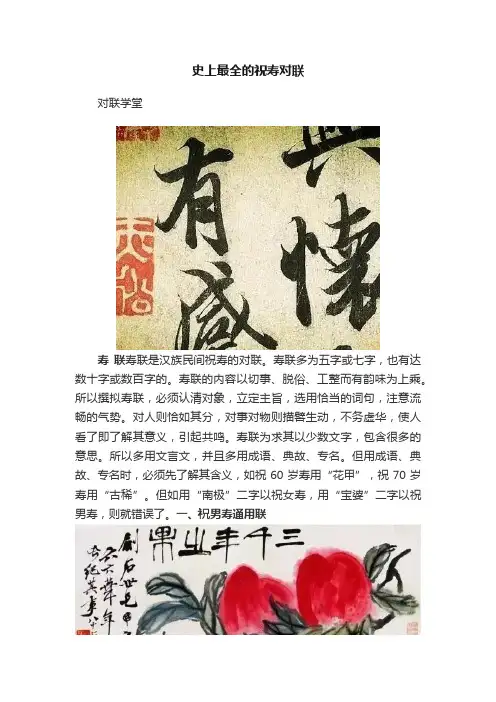 史上最全的祝寿对联
对联学堂
興懷
有感
天俗
寿 联寿联是汉族民间祝寿的对联。寿联多为五字或七字，也有达
数十字或数百字的。寿联的内容以切事、脱俗、工整而有韵味为上乘。
所以撰拟寿联，必须认清对象，立定主旨，选用恰当的词句，注意流
畅的气势。对人则恰如其分，对事对物则描写生动，不务虚华，使人
看了即了解其意义，引起共鸣。寿联为求其以少数文字，包含很多的
意思。所以多用文言文，并且多用成语、典故、专名。但用成语、典
故、专名时，必须先了解其含义，如祝 60 岁寿用“花甲”，祝 70 岁
寿用“古稀”。但如用“南极”二字以祝女寿，用“宝婺”二字以祝
男寿，则就错误了。一、祝男寿通用联
三千年之果